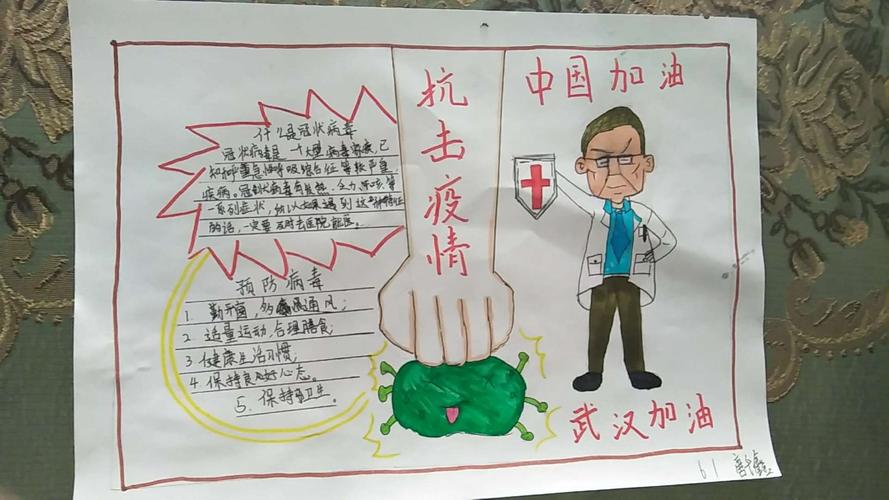 什么是冠状病毒
冠状病毒是一个大型病毒家族,已
知抑重急性呼吸综合征等较严重
疾病,冠状病毒有发热、乏力、干咳、等
一系列症状,所以如果遇到这些种症状
的话,一定要及时去医院就医。
预防病毒
1. 勤开窗,多通风;
2 适量运动,合理膳食;
3 健康生活习惯;
4. 保持良好心态。
5. 保持卫生。
抗击疫情
中国加油
武汉加油
61